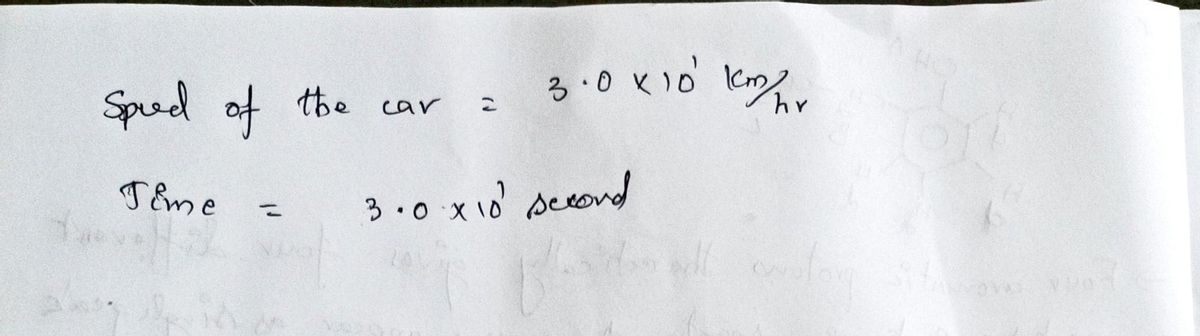 Speed of the car = 3.0 x 10¹ km/hr
Time = 3.0 x 10¹ second